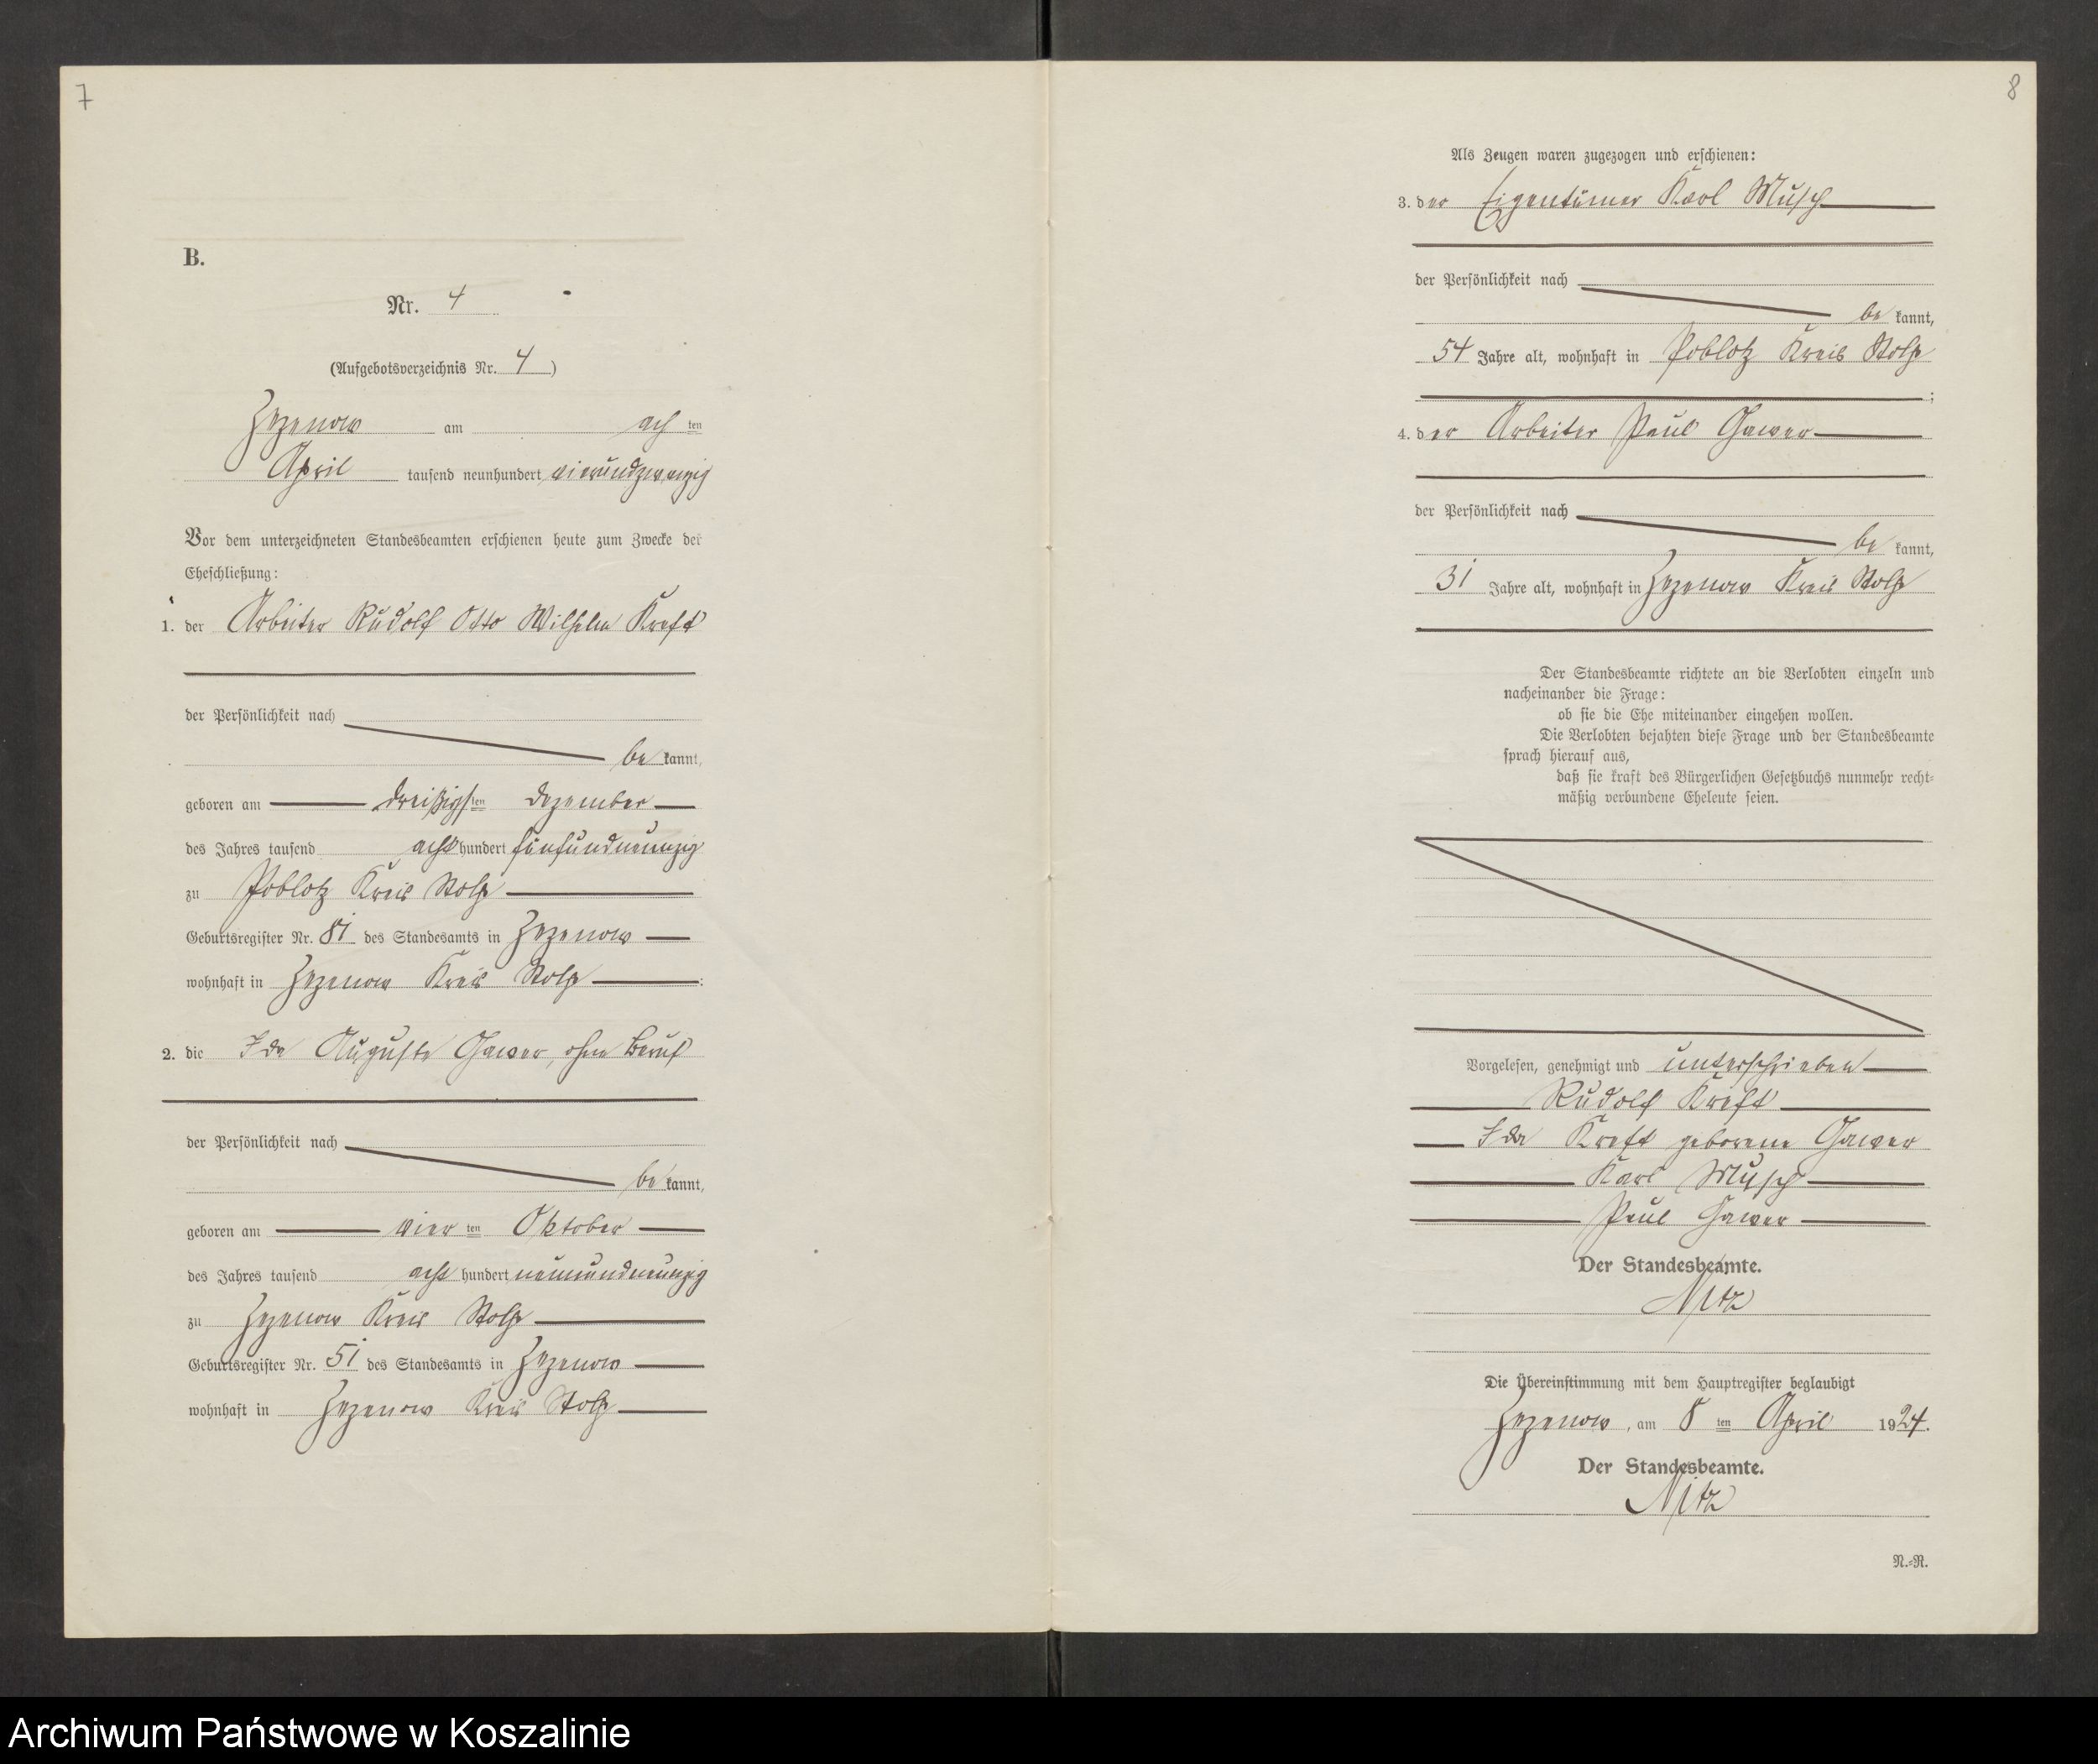 7
B.
Nr. 4
(Aufgebotsverzeichnis Nr. 4)
Zezenow am ach ten
April tausend neunhundert vierundzwanzig
Vor dem unterzeichneten Standesbeamten erschienen heute zum Zwecke der
Eheschließung:
1. der Arbeiter Rudolf Otto Wilhelm Kreft
der Persönlichkeit nach
be kannt,
geboren am dreißigs ten Dezember
des Jahres tausend acht hundert fünfundneunzig
zu Poblotz Kreis Stolp
Geburtsregister Nr. 81 des Standesamts in Zezenow
wohnhaft in Zezenow Kreis Stolp :
2. die Ida Auguste Gawer, ohne Beruf
der Persönlichkeit nach
be kannt,
geboren am vier ten Oktober
des Jahres tausend acht hundert neunundneunzig
zu Zezenow Kreis Stolp
Geburtsregister Nr. 51 des Standesamts in Zezenow
wohnhaft in Zezenow Kreis Stolp
8
Als Zeugen waren zugezogen und erschienen:
3. der Eigentümer Karl Musch
der Persönlichkeit nach
be kannt,
54 Jahre alt, wohnhaft in Poblotz Kreis Stolp
;
4. der Arbeiter Paul Gawer
der Persönlichkeit nach
be kannt,
31 Jahre alt, wohnhaft in Zezenow Kreis Stolp
Der Standesbeamte richtete an die Verlobten einzeln und
nacheinander die Frage:
ob sie die Ehe miteinander eingehen wollen.
Die Verlobten bejahten diese Frage und der Standesbeamte
sprach hierauf aus,
daß sie kraft des Bürgerlichen Gesetzbuchs nunmehr recht-
mäßig verbundene Eheleute seien.
Vorgelesen, genehmigt und unterschrieben
Rudolf Kreft
Ida Kreft geborene Gawer
Karl Musch
Paul Gawer
Der Standesbeamte.
Nitz
Die Übereinstimmung mit dem Hauptregister beglaubigt
Zezenow, am 8 ten April 1924.
Der Standesbeamte.
Nitz
N.-R.
Archiwum Państwowe w Koszalinie